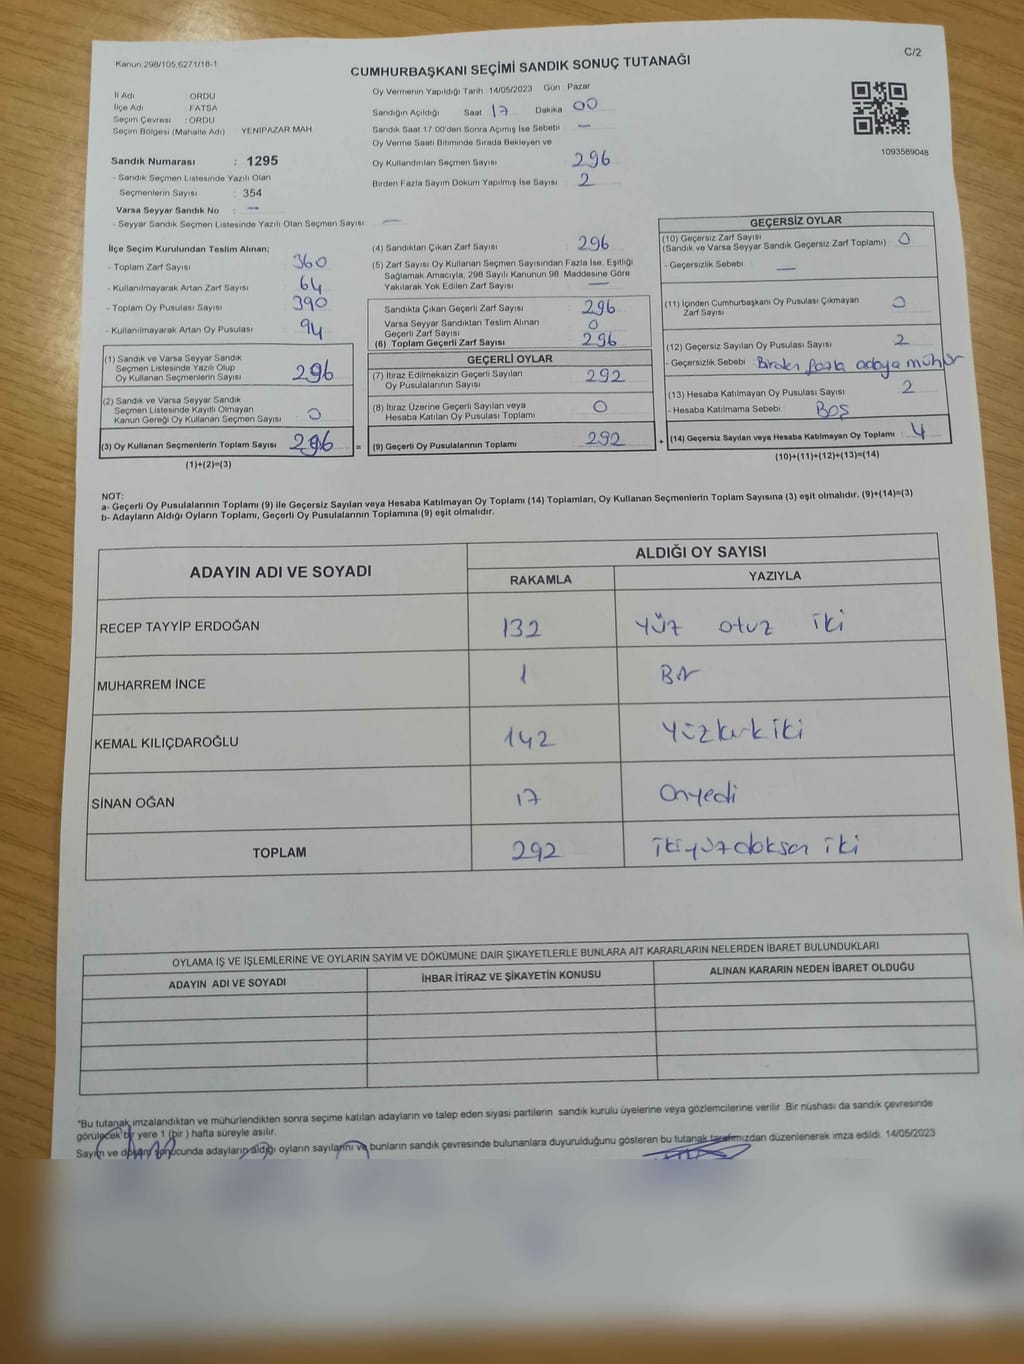 Kanun,298/105,6271/18-1
C/2
CUMHURBAŞKANI SEÇİMİ SANDIK SONUÇ TUTANAĞI
İl Adı : ORDU
İlçe Adı : FATSA
Seçim Çevresi : ORDU
Seçim Bölgesi (Mahalle Adı) YENİPAZAR MAH
Sandık Numarası : 1295
- Sandık Seçmen Listesinde Yazılı Olan
Seçmenlerin Sayısı : 354
Varsa Seyyar Sandık No : —
- Seyyar Sandık Seçmen Listesinde Yazılı Olan Seçmen Sayısı —
Oy Vermenin Yapıldığı Tarih :14/05/2023 Gün Pazar
Sandığın Açıldığı Saat 17 Dakika 00
Sandık Saat 17:00'den Sonra Açımış İse Sebebi —
Oy Verme Saati Bitiminde Sırada Bekleyen ve
Oy Kullandırılan Seçmen Sayısı 296
Birden Fazla Sayım Döküm Yapılmış İse Sayısı 2
1093589048
İlçe Seçim Kurulundan Teslim Alınan;
- Toplam Zarf Sayısı 360
- Kullanılmayarak Artan Zarf Sayısı 64
- Toplam Oy Pusulası Sayısı 390
- Kullanılmayarak Artan Oy Pusulası 94
(1) Sandık ve Varsa Seyyar Sandık
Seçmen Listesinde Yazılı Olup
Oy Kullanan Seçmenlerin Sayısı 296
(2) Sandık ve Varsa Seyyar Sandık
Seçmen Listesinde Kayıtlı Olmayan
Kanun Gereği Oy Kullanan Seçmen Sayısı 0
(3) Oy Kullanan Seçmenlerin Toplam Sayısı 296 =
(1)+(2)=(3)
(4) Sandıktan Çıkan Zarf Sayısı 296
(5) Zarf Sayısı Oy Kullanan Seçmen Sayısından Fazla İse, Eşitliği
Sağlamak Amacıyla, 298 Sayılı Kanunun 98. Maddesine Göre
Yakılarak Yok Edilen Zarf Sayısı —
Sandıkta Çıkan Geçerli Zarf Sayısı 296
Varsa Seyyar Sandıktan Teslim Alınan
Geçerli Zarf Sayısı 0
(6) Toplam Geçerli Zarf Sayısı 296
GEÇERLİ OYLAR
(7) İtiraz Edilmeksizin Geçerli Sayılan
Oy Pusulalarının Sayısı 292
(8) İtiraz Üzerine Geçerli Sayılan veya
Hesaba Katılan Oy Pusulası Toplamı 0
(9) Geçerli Oy Pusulalarının Toplamı 292 +
GEÇERSİZ OYLAR
(10) Geçersiz Zarf Sayısı
(Sandık ve Varsa Seyyar Sandık Geçersiz Zarf Toplamı) 0
- Geçersizlik Sebebi —
(11) İçinden Cumhurbaşkanı Oy Pusulası Çıkmayan
Zarf Sayısı 0
(12) Geçersiz Sayılan Oy Pusulası Sayısı 2
- Geçersizlik Sebebi Birden fazla adaya mühür
(13) Hesaba Katılmayan Oy Pusulası Sayısı 2
- Hesaba Katılmama Sebebi BOŞ
(14) Geçersiz Sayılan veya Hesaba Katılmayan Oy Toplamı : 4
(10)+(11)+(12)+(13)=(14)
NOT:
a- Geçerli Oy Pusulalarının Toplamı (9) ile Geçersiz Sayılan veya Hesaba Katılmayan Oy Toplamı (14) Toplamları, Oy Kullanan Seçmenlerin Toplam Sayısına (3) eşit olmalıdır. (9)+(14)=(3)
b- Adayların Aldığı Oyların Toplamı, Geçerli Oy Pusulalarının Toplamına (9) eşit olmalıdır.
ADAYIN ADI VE SOYADI
ALDIĞI OY SAYISI
RAKAMLA YAZIYLA
RECEP TAYYİP ERDOĞAN 132 Yüz otuz iki
MUHARREM İNCE 1 Bir
KEMAL KILIÇDAROĞLU 142 Yüzkırk iki
SİNAN OĞAN 17 Onyedi
TOPLAM 292 ikiyüzdoksan iki
OYLAMA İŞ VE İŞLEMLERİNE VE OYLARIN SAYIM VE DÖKÜMÜNE DAİR ŞİKAYETLERLE BUNLARA AİT KARARLARIN NELERDEN İBARET BULUNDUKLARI
ADAYIN ADI VE SOYADI İHBAR İTİRAZ VE ŞİKAYETİN KONUSU ALINAN KARARIN NEDEN İBARET OLDUĞU
*Bu tutanak imzalandıktan ve mühürlendikten sonra seçime katılan adayların ve talep eden siyasi partilerin sandık kurulu üyelerine veya gözlemcilerine verilir .Bir nüshası da sandık çevresinde
görülecek bir yere 1 (bir ) hafta süreyle asılır.
Sayım ve döküm sonucunda adayların aldığı oyların sayılarını ve bunların sandık çevresinde bulunanlara duyurulduğunu gösteren bu tutanak tarafımızdan düzenlenerek imza edildi. 14/05/2023